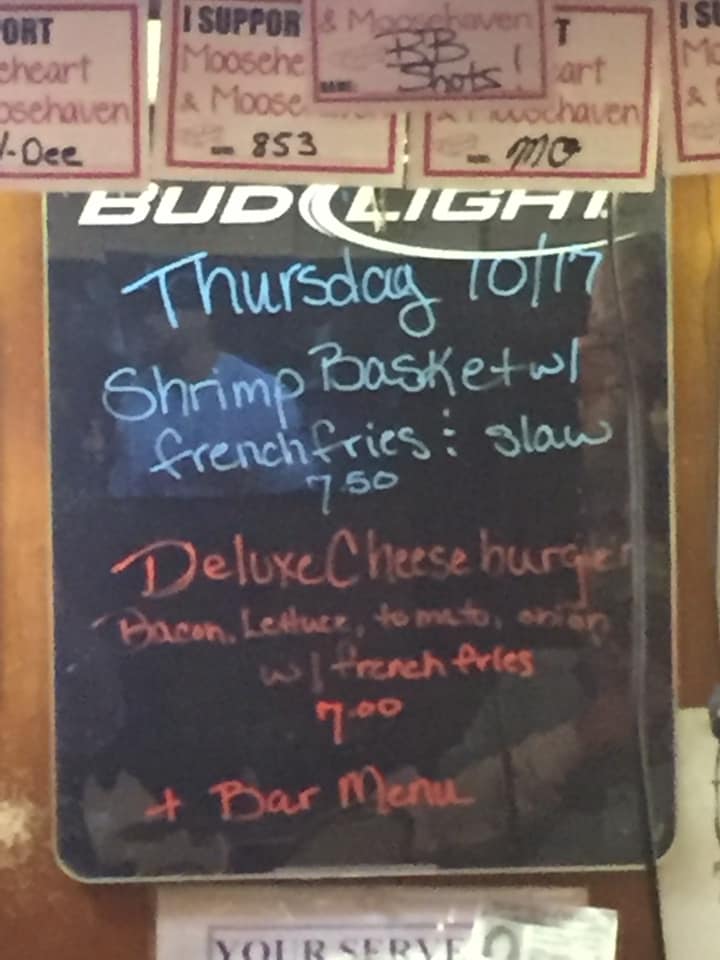 ORT
eheart
osehaven
-Dee
I SUPPOR
Moosehe
& Moose
- 853
& Moosehaven
BB
Shots!
NAME:
T
art
haven
- MO
I SU
Mo
&
BUD LIGHT
Thursday 10/17
Shrimp Basket w/
french fries : slaw
7.50
Deluxe Cheeseburger
Bacon, Lettuce, tomato, onion
w/ french fries
7.00
+ Bar Menu
YOUR SERVE